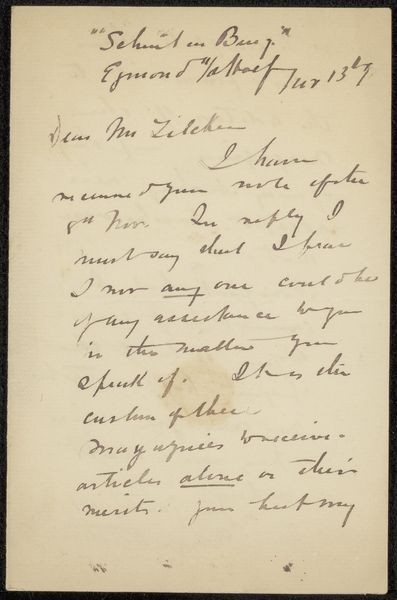 "Schuit en Burg."
Egmond a/d Hoef Nov 13th
Dear Mr Zilcken
I have
received your note of the
8th Nov. In reply I
must say that I fear
I nor any one could be
of any assistance to you
in the matter you
speak of. It is the
custom of the
magazines to receive
articles alone on their
merits. Your best way